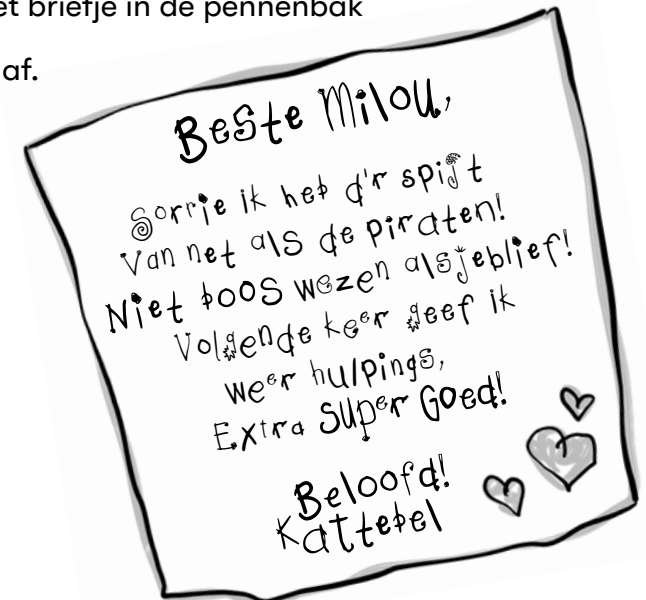 et briefje in de pennenbak
af.
Beste Milou,
Sorrie ik heb d'r spijt
Van net als de piraten!
Niet boos wezen alsjeblief!
Volgende keer geef ik
weer hulpings,
Extra super Goed!
Beloofd!
Kattebel